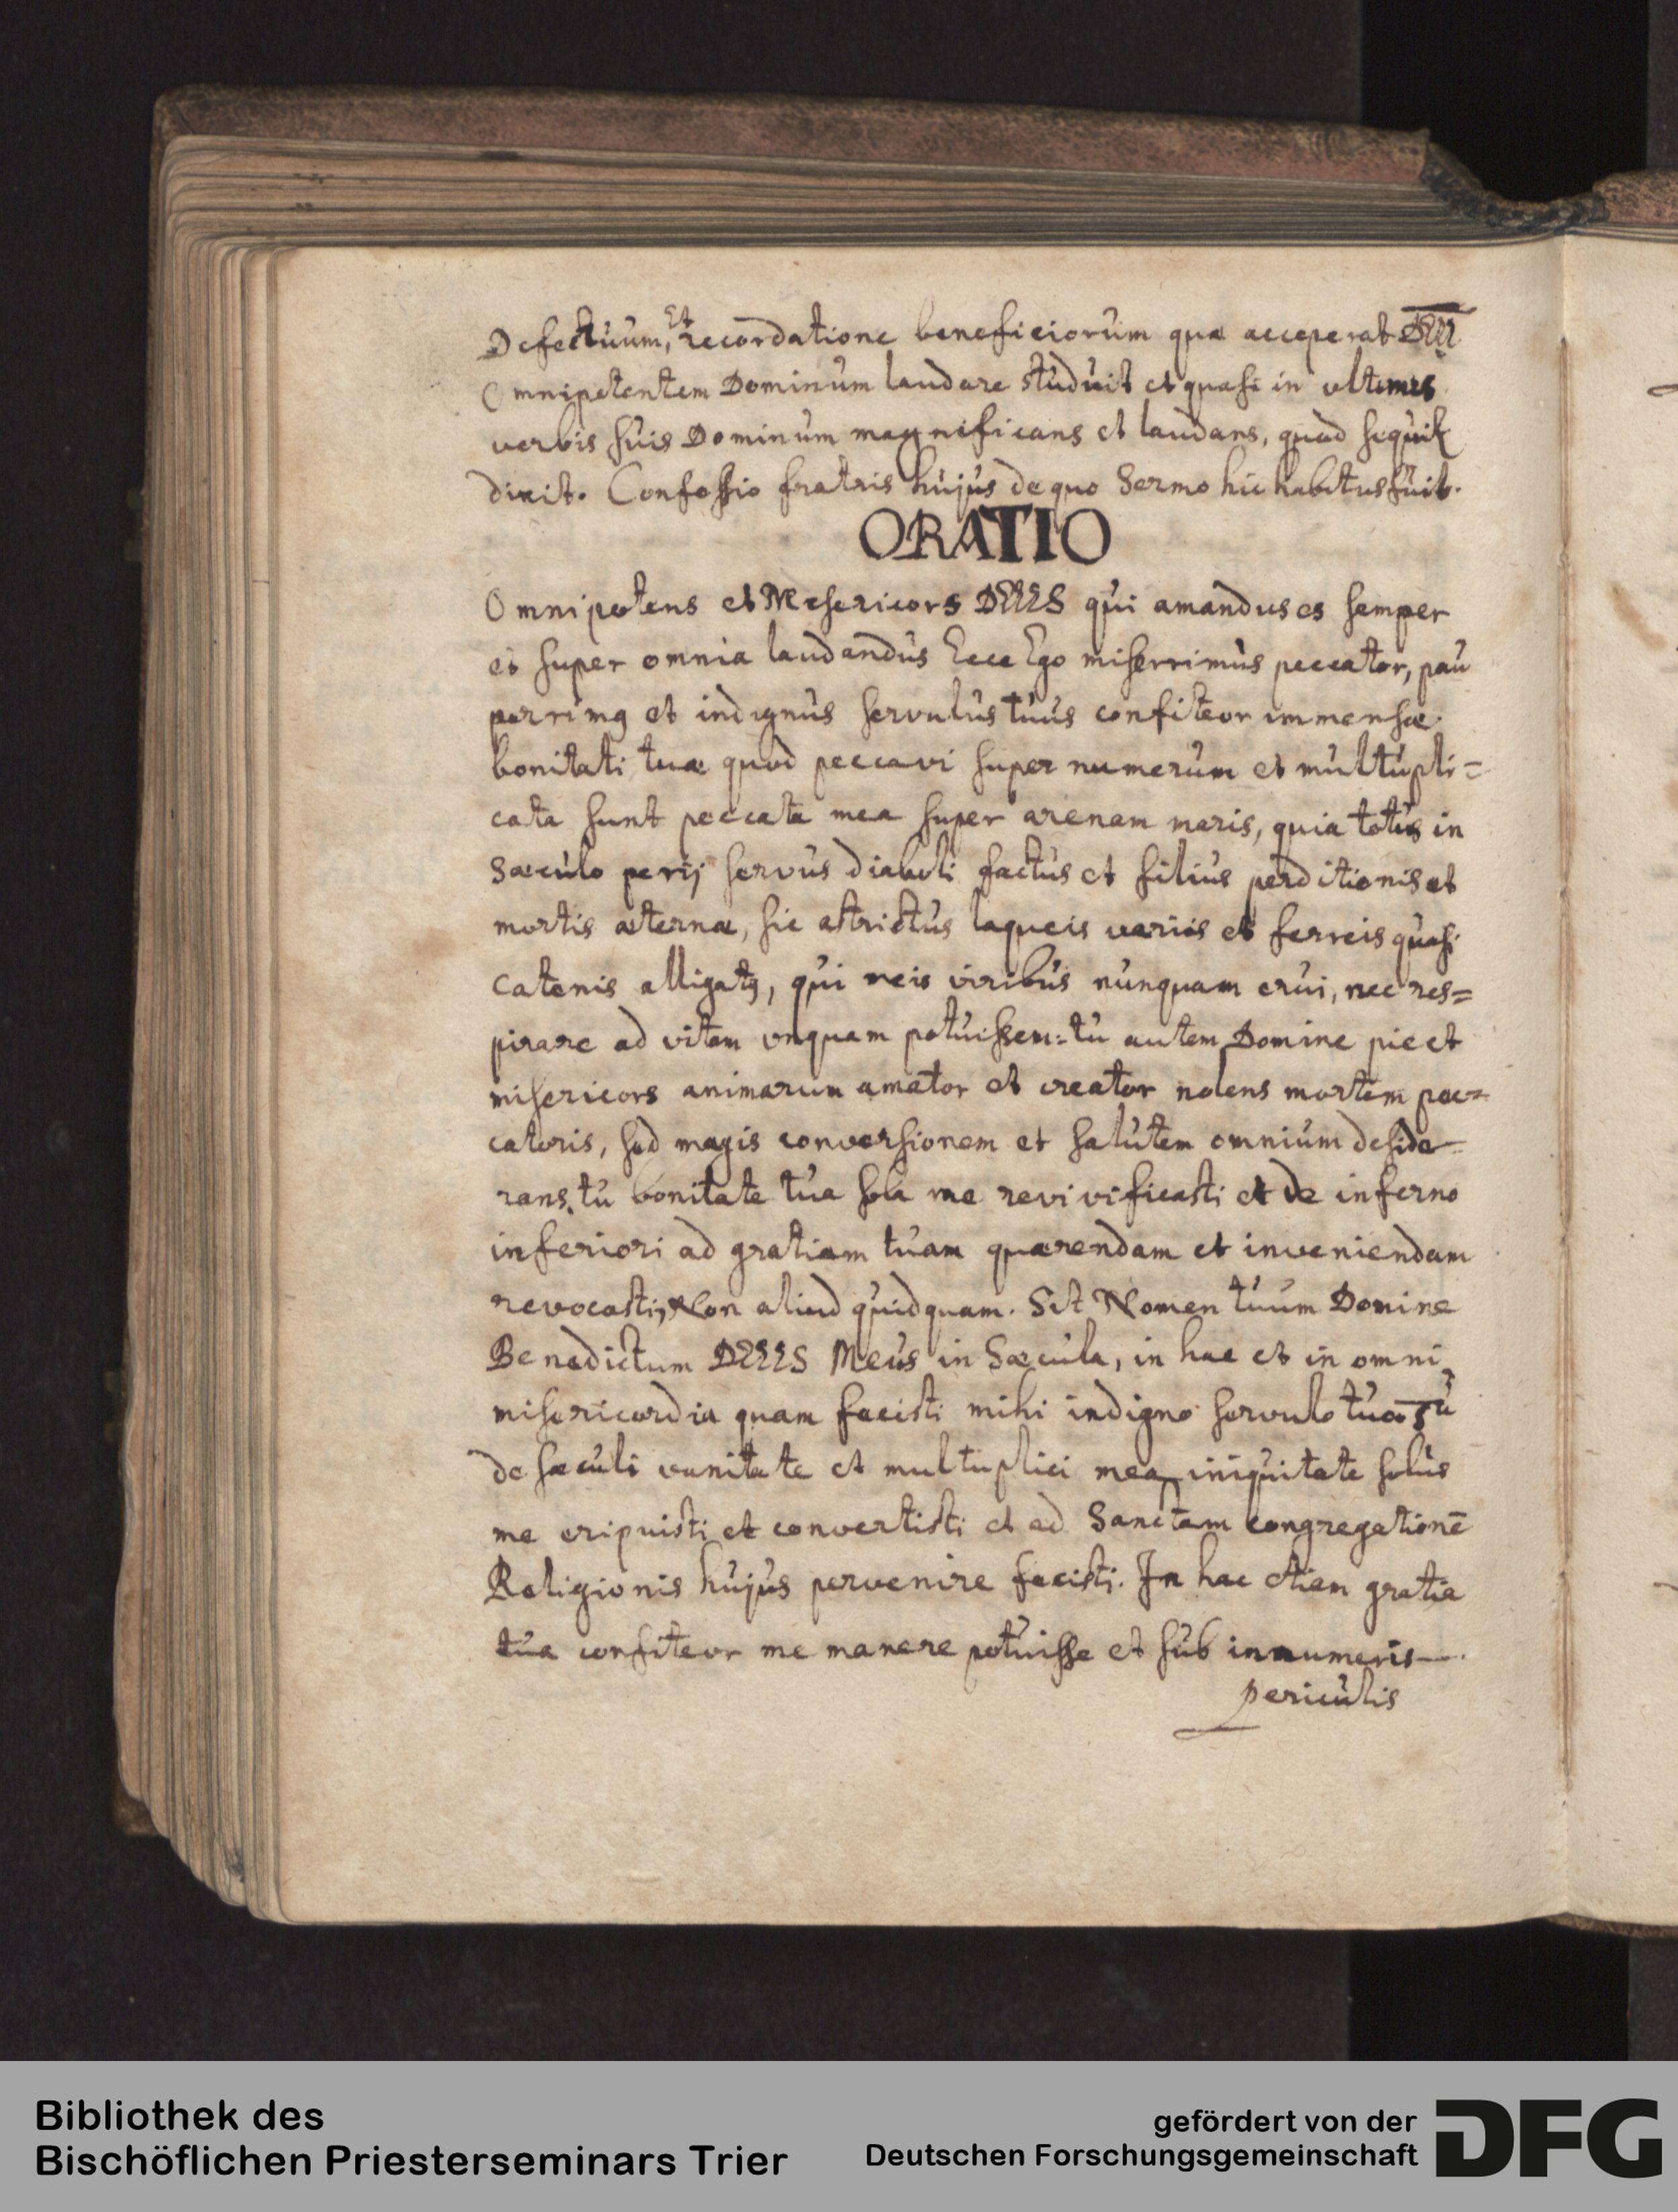 Defectuum, Et recordatione beneficiorum quæ acceperat
Omnipotentem Dominum laudare studuit et quasi in ultimis
verbis suis Dominum magnificans et laudans, quod sequit
dixit. Confessio fratris hujus de quo Sermo hic habitus fuit.
ORATIO
Omnipotens et Misericors DEUS qui amandus es semper
et super omnia laudandus Ecce Ego miserrimus peccator, pau
perrimq et indignus servulus tuus confiteor immensæ
bonitati tuæ quod peccavi super numerum et multipli=
cata sunt peccata mea super arenam maris, quia totus in
Sæculo perij servus diaboli factus et filius perditionis et
mortis æternæ, sic astrictus laqueis variis et ferreis quasi
catenis alligatq, qui meis viribus nunquam erui, nec res=
pirare ad vitam unquam potuissem: tu autem Domine pie et
misericors animarum amator et creator nolens mortem pec=
catoris, sed magis conversionem et salutem omnium deside
rans, tu bonitate tua sola me revivificasti et de inferno
inferiori ad gratiam tuam quærendam et inveniendam
revocasti, Non aliud quidquam. Sit Nomen tuum Domine
Benedictum DEUS Meus in Sæcula, in hac et in omni
misericordia quam fecisti mihi indigno servulo tuo, Tu
de sæculi vanitate et multuplici mea iniquitate solus
me eripuisti et convertisti et ad Sanctam congregationē
Religionis hujus pervenire fecisti. In hac etiam gratia
tua confiteor me manere potuisse et sub innumeris
periculis
Bibliothek des
Bischöflichen Priesterseminars Trier
gefördert von der
Deutschen Forschungsgemeinschaft
DFG